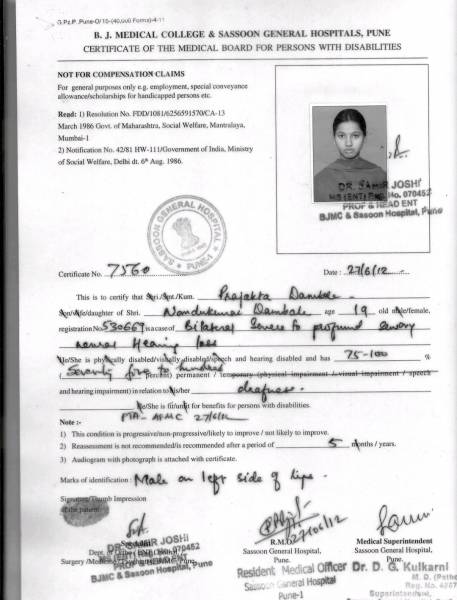 G.Pz.P. Pune-O/10-(40,000 Forms)-4-11
B. J. MEDICAL COLLEGE & SASSOON GENERAL HOSPITALS, PUNE
CERTIFICATE OF THE MEDICAL BOARD FOR PERSONS WITH DISABILITIES
NOT FOR COMPENSATION CLAIMS
For general purposes only e.g. employment, special conveyance
allowance/scholarships for handicapped persons etc.
Read: 1) Resolution No. FDD/1081/6256591570/CA-13
March 1986 Govt. of Maharashtra, Social Welfare, Mantralaya,
Mumbai-1
2) Notification No. 42/81 HW-111/Government of India, Ministry
of Social Welfare, Delhi dt. 6th Aug. 1986.
DR. SAMIR JOSHI
MS (ENT) Reg. No. 070452
PROF & HEAD ENT
BJMC & Sassoon Hospital, Pune
SASSOON GENERAL HOSPITAL
PUNE-1
Certificate No. 7560 Date : 27/6/12
This is to certify that Shri./Smt./Kum. Prajakta Dambale
Son/wife/daughter of Shri. Nandukumar Dambale age 19 old male/female,
registration No 530669 is a case of Bilateral severe to profound sensory
neural Hearing loss
He/She is physically disabled/visually disabled/speech and hearing disabled and has 75-100 %
( Seventy five to hundred percent) permanent / temporary (physical impairment / visual impairment / speech
and hearing impairment) in relation to his/her deafness.
He/She is fit/unfit for benefits for persons with disabilities.
Note :- 27/6/12
1) This condition is progressive/non-progressive/likely to improve / not likely to improve.
2) Reassessment is not recommended/is recommended after a period of 5 months / years.
3) Audiogram with photograph is attached with certificate.
Marks of identification : Mole on left side of lips.
Signature/Thumb Impression
of the patient
27/06/12
DR. SAMIR JOSHI
MS (ENT) Reg. No. 070452
PROF & HEAD ENT
BJMC & Sassoon Hospital, Pune
R.M.O.
Sassoon General Hospital,
Pune.
Medical Superintendent
Sassoon General Hospital,
Pune.
Resident Medical Officer
Sassoon General Hospital
Pune-1
Dr. D. G. Kulkarni
M. D. (Path)
Superintendent